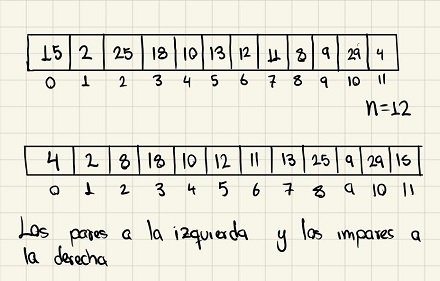 15 2 25 18 10 13 12 11 8 9 29 4
0 1 2 3 4 5 6 7 8 9 10 11
n=12
4 2 8 18 10 12 11 13 25 9 29 15
0 1 2 3 4 5 6 7 8 9 10 11
Los pares a la izquierda y los impares a
la derecha